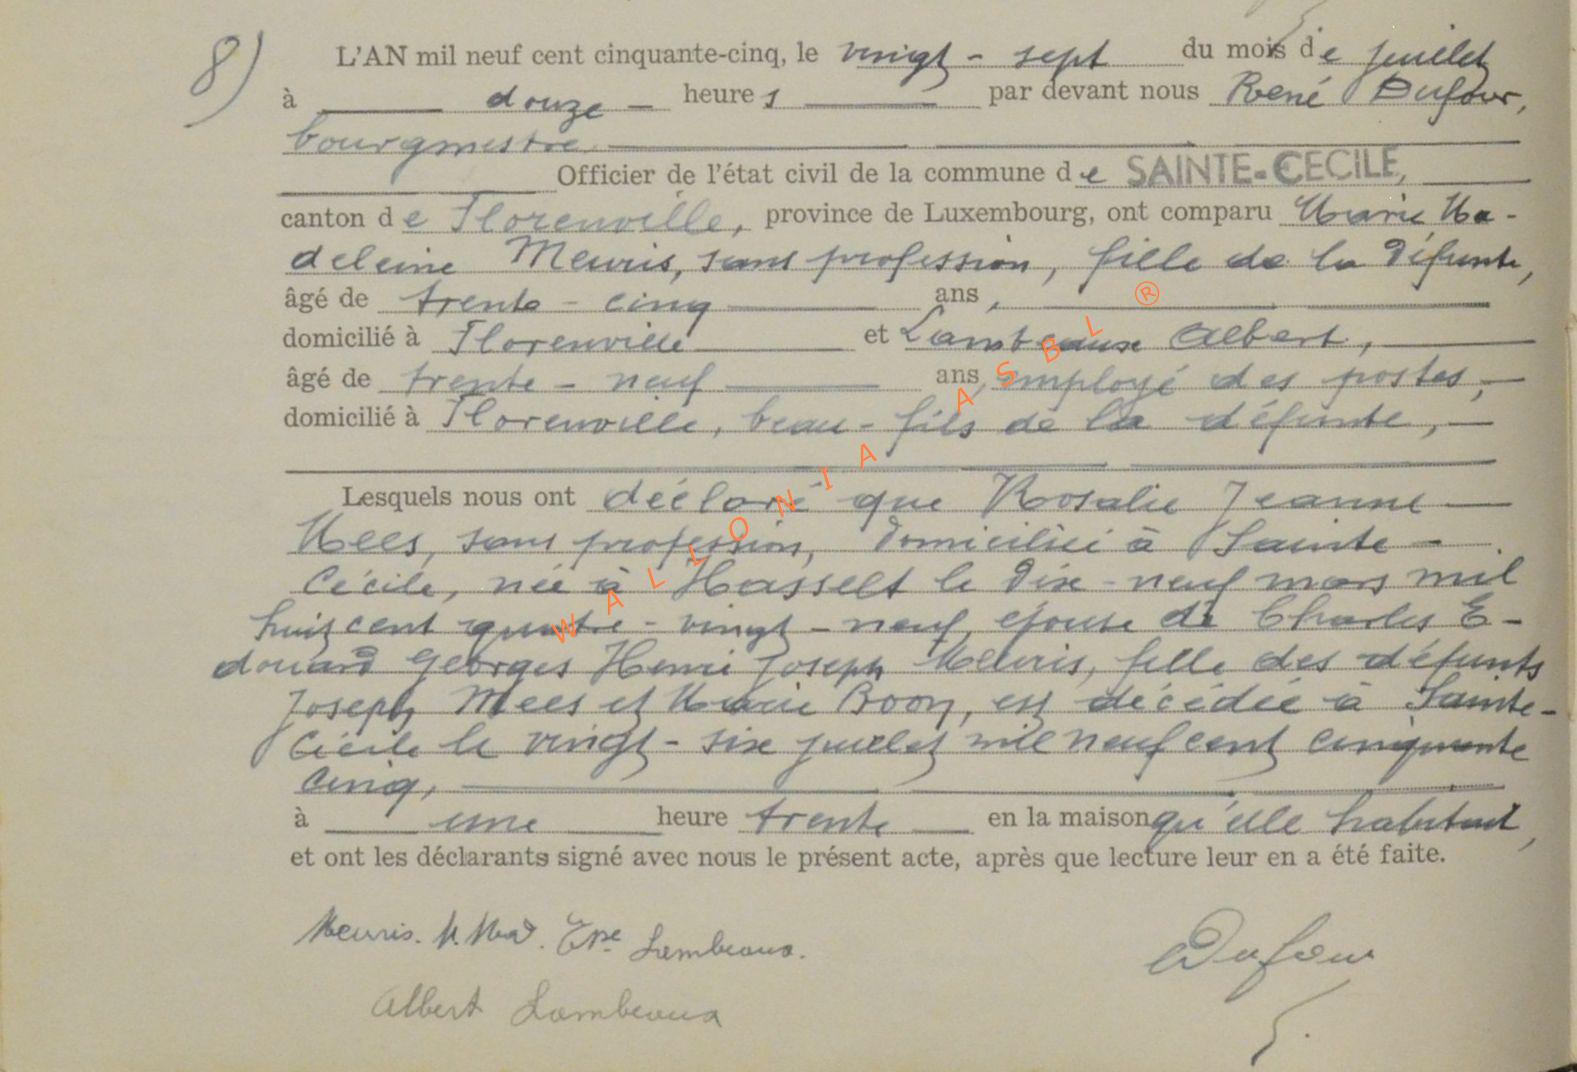 8) L'AN mil neuf cent cinquante-cinq, le vingt - sept du mois de juillet
à douze heures par devant nous René Dufour,
bourgmestre
Officier de l'état civil de la commune de SAINTE-CECILE,
canton de Florenville, province de Luxembourg, ont comparu Marie Ma-
deleine Meuris, sans profession, fille de la défunte,
âgé de trente - cinq ans,
domicilié à Florenville et Lambeaux Albert,
âgé de trente - neuf ans, employé des postes,
domicilié à Florenville, beau-fils de la défunte,
Lesquels nous ont déclaré que Rosalie Jeanne
Mees, sans profession, domiciliée à Sainte-
Cécile, née à Hasselt le dix-neuf mars mil
huit cent quatre-vingt-neuf, épouse de Charles E-
douard Georges Henri Joseph Meuris, fille des défunts
Joseph Mees et Marie Boon, est décédée à Sainte-
Cécile le vingt-six juillet mil neuf cent cinquante
cinq,
à une heure trente en la maison qu'elle habitait,
et ont les déclarants signé avec nous le présent acte, après que lecture leur en a été faite.
Meuris. M. Mad. Epse Lambeaux.
Dufour
Albert Lambeaux
WALLONIA ASBL ®